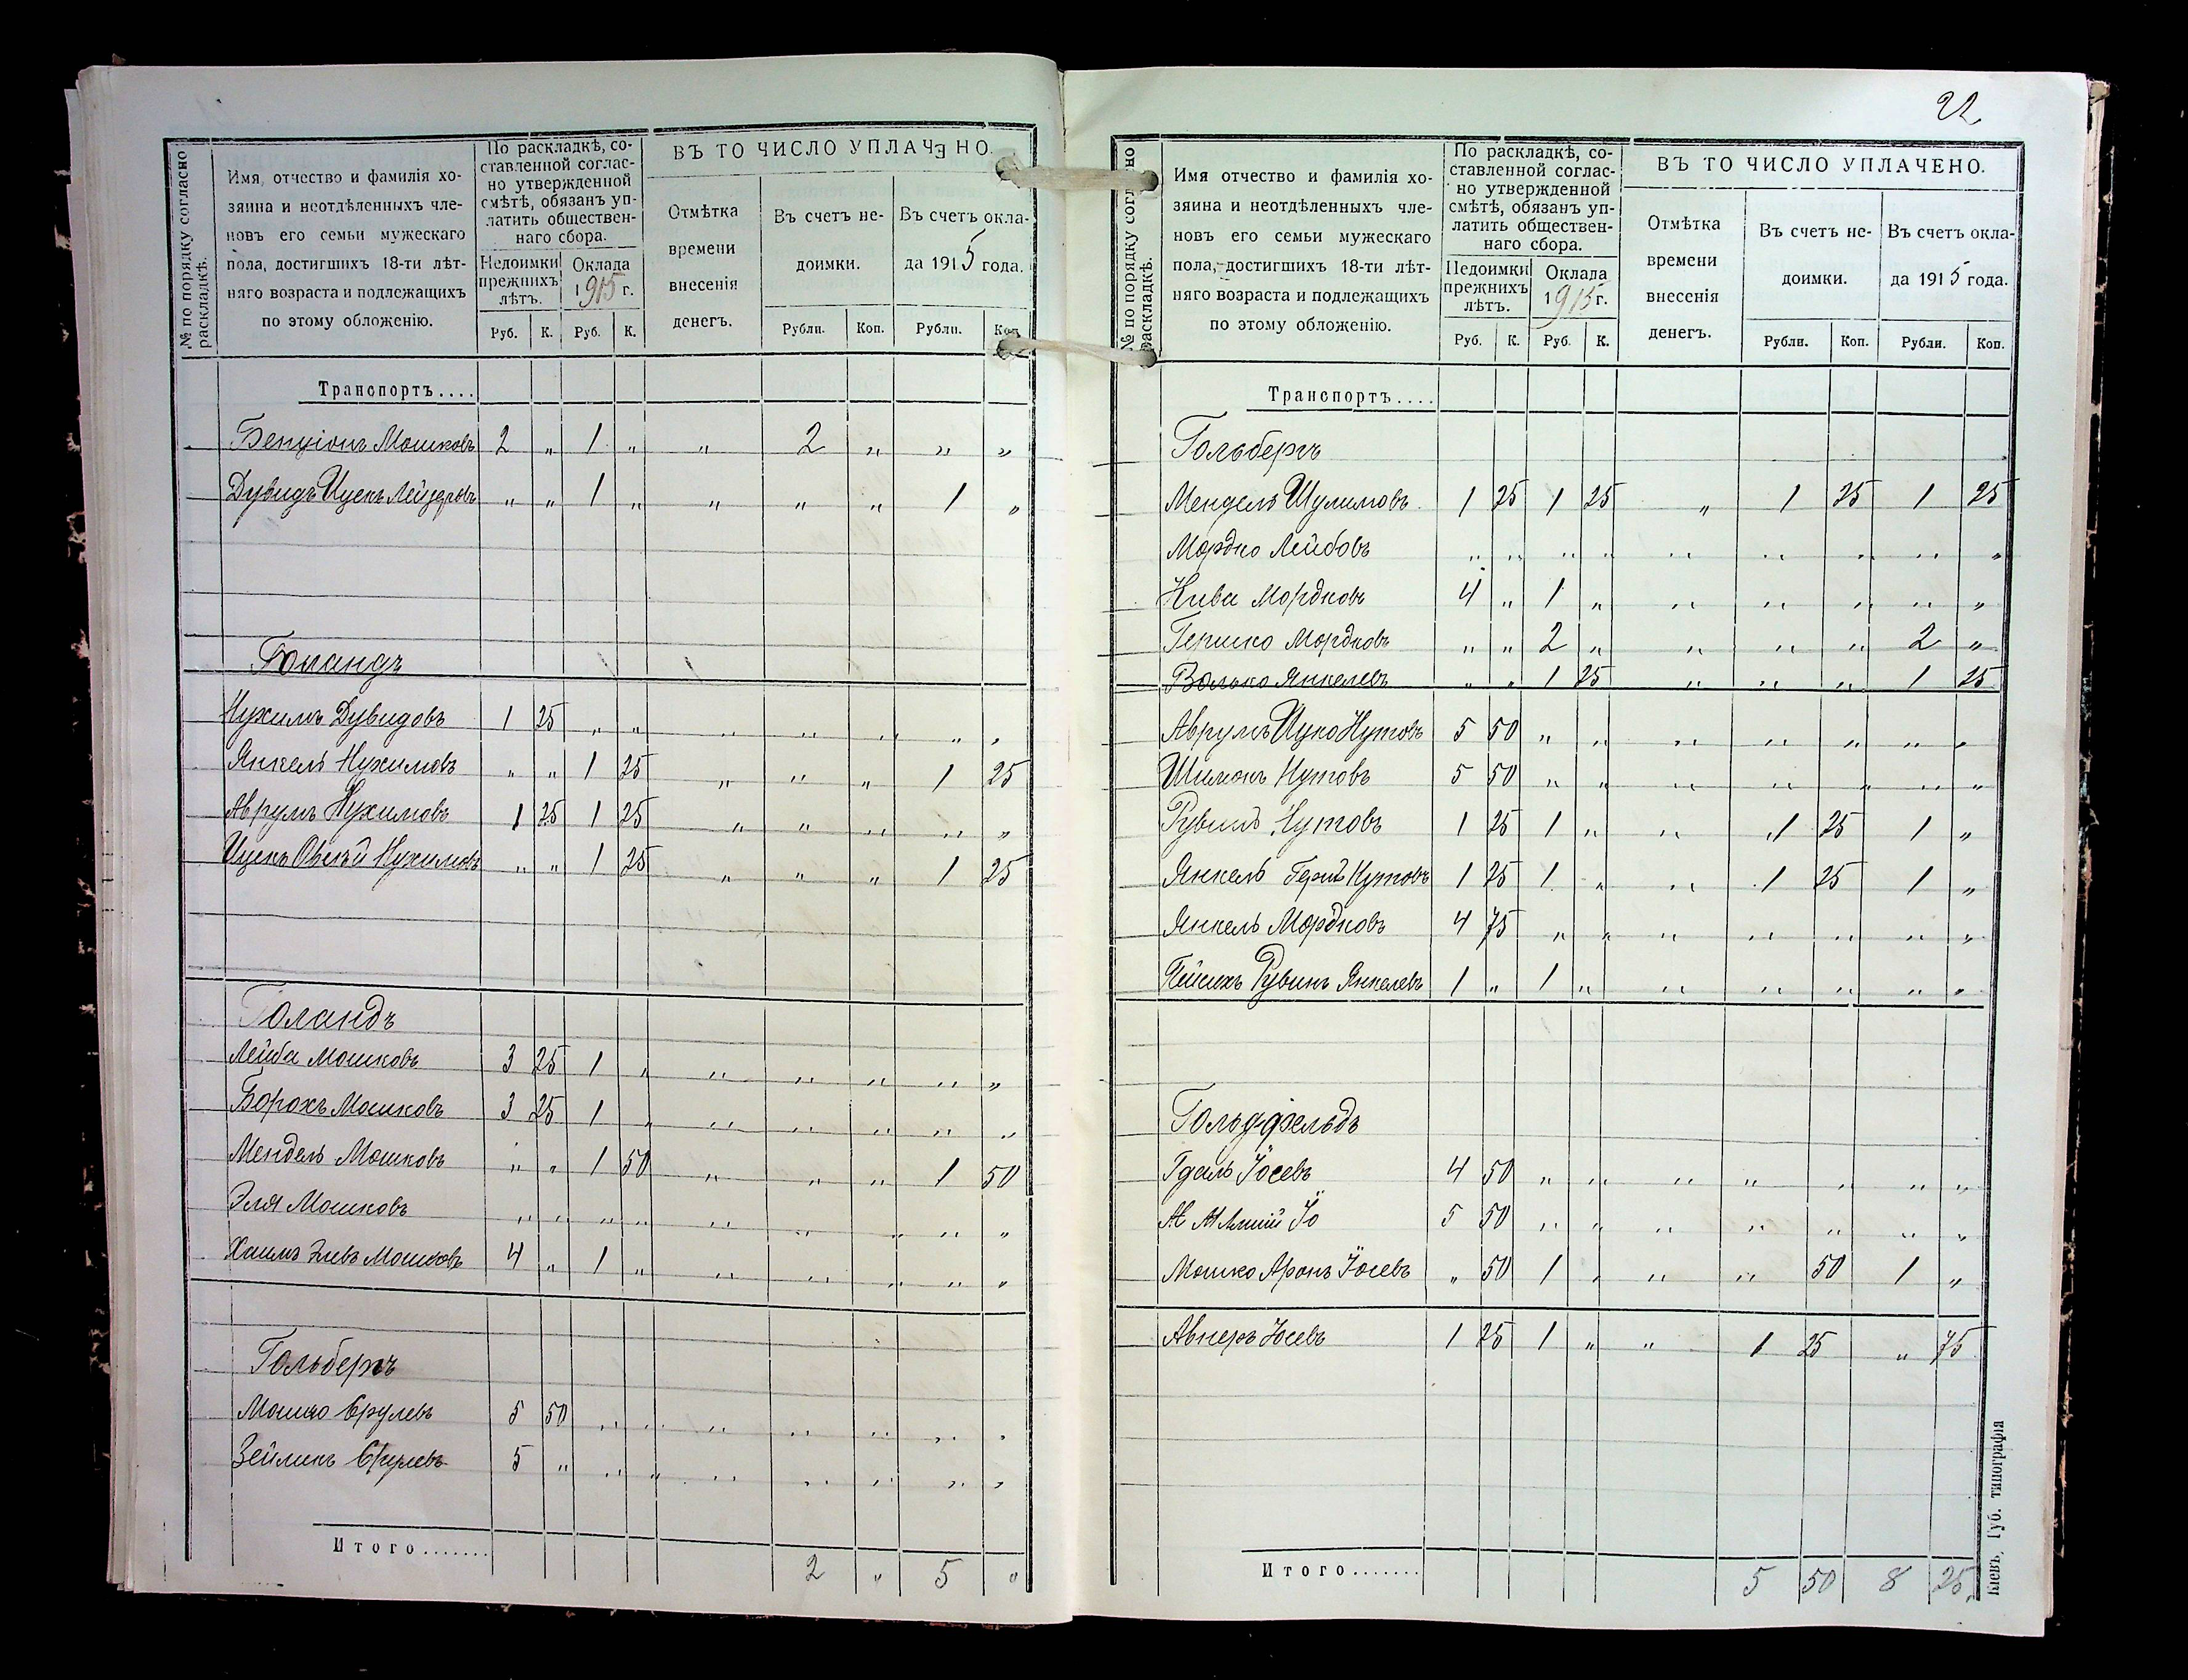 № по порядку согласно раскладкѣ.
Имя, отчество и фамилія хо-
зяина и неотдѣленныхъ чле-
новъ его семьи мужескаго
пола, достигшихъ 18-ти лѣт-
няго возраста и подлежащихъ
по этому обложенію.
По раскладкѣ, со-
ставленной соглас-
но утвержденной
смѣтѣ, обязанъ уп-
латить обществен-
наго сбора.
Недоимки
прежнихъ
лѣтъ.
Оклада
1915 г.
Руб. К. Руб. К.
ВЪ ТО ЧИСЛО УПЛАЧЕНО.
Отмѣтка
времени
внесенія
денегъ.
Въ счетъ не-
доимки.
Въ счетъ окла-
да 1915 года.
Рубли. Коп. Рубли. Коп.
Транспортъ....
Бенціонъ Мошковъ 2 „ 1 „ „ 2 „ „ „
Дувидъ Ицекъ Лейзеровъ „ „ 1 „ „ „ „ 1 „
Голандъ
Нухимъ Дувидовъ 1 25 „ „ „ „ „ „ „
Янкель Нухимовъ „ „ 1 25 „ „ „ 1 25
Аврумъ Нухимовъ 1 25 1 25 „ „ „ „ „
Ицекъ Овсей Нухимовъ „ „ 1 25 „ „ „ 1 25
Голандъ
Лейба Мошковъ 3 25 1 „ „ „ „ „ „
Борохъ Мошковъ 3 25 1 „ „ „ „ „ „
Мендель Мошковъ „ „ 1 50 „ „ „ 1 50
Эля Мошковъ „ „ „ „ „ „ „ „ „
Хаимъ Мошковъ 4 „ 1 „ „ „ „ „ „
Гольбергъ
Мошко Срулевъ 5 50 „ „ „ „ „ „ „
Зейликъ Срулевъ 5 „ „ „ „ „ „ „ „
Итого....... 2 „ 5 „
22
№ по порядку согласно раскладкѣ.
Имя отчество и фамилія хо-
зяина и неотдѣленныхъ чле-
новъ его семьи мужескаго
пола, достигшихъ 18-ти лѣт-
няго возраста и подлежащихъ
по этому обложенію.
По раскладкѣ, со-
ставленной соглас-
но утвержденной
смѣтѣ, обязанъ уп-
латить обществен-
наго сбора.
Недоимки
прежнихъ
лѣтъ.
Оклада
1915 г.
Руб. К. Руб. К.
ВЪ ТО ЧИСЛО УПЛАЧЕНО.
Отмѣтка
времени
внесенія
денегъ.
Въ счетъ не-
доимки.
Въ счетъ окла-
да 1915 года.
Рубли. Коп. Рубли. Коп.
Транспортъ....
Гольбергъ
Мендель Шулимовъ 1 25 1 25 „ 1 25 1 25
Мордко Лейбовъ „ „ „ „ „ „ „ „ „
Кива Мордковъ 4 „ 1 „ „ „ „ „ „
Гершко Мордковъ „ „ 2 „ „ „ „ 2 „
Волько Янкелевъ „ „ 1 25 „ „ „ 1 25
Аврумъ Ицко Нутовъ 5 50 „ „ „ „ „ „ „
Шимонъ Нутовъ 5 50 „ „ „ „ „ „ „
Рувинъ Нутовъ 1 25 1 „ „ 1 25 1 „
Янкель Герш Нутовъ 1 25 1 „ „ 1 25 1 „
Янкель Мордковъ 4 75 „ „ „ „ „ „ „
Пейсехъ Рувинъ Янкелевъ 1 „ 1 „ „ „ „ „ „
Гольдфельдъ
Гдаль Іосевъ 4 50 „ „ „ „ „ „ „
Іо 5 50 „ „ „ „ „ „ „
Мошко Аронъ Іосевъ „ 50 1 „ „ „ 50 1 „
Авнеръ Іосевъ 1 25 1 „ „ 1 25 „ 75
Итого....... 5 50 8 25
Кіевъ, Губ. типографія